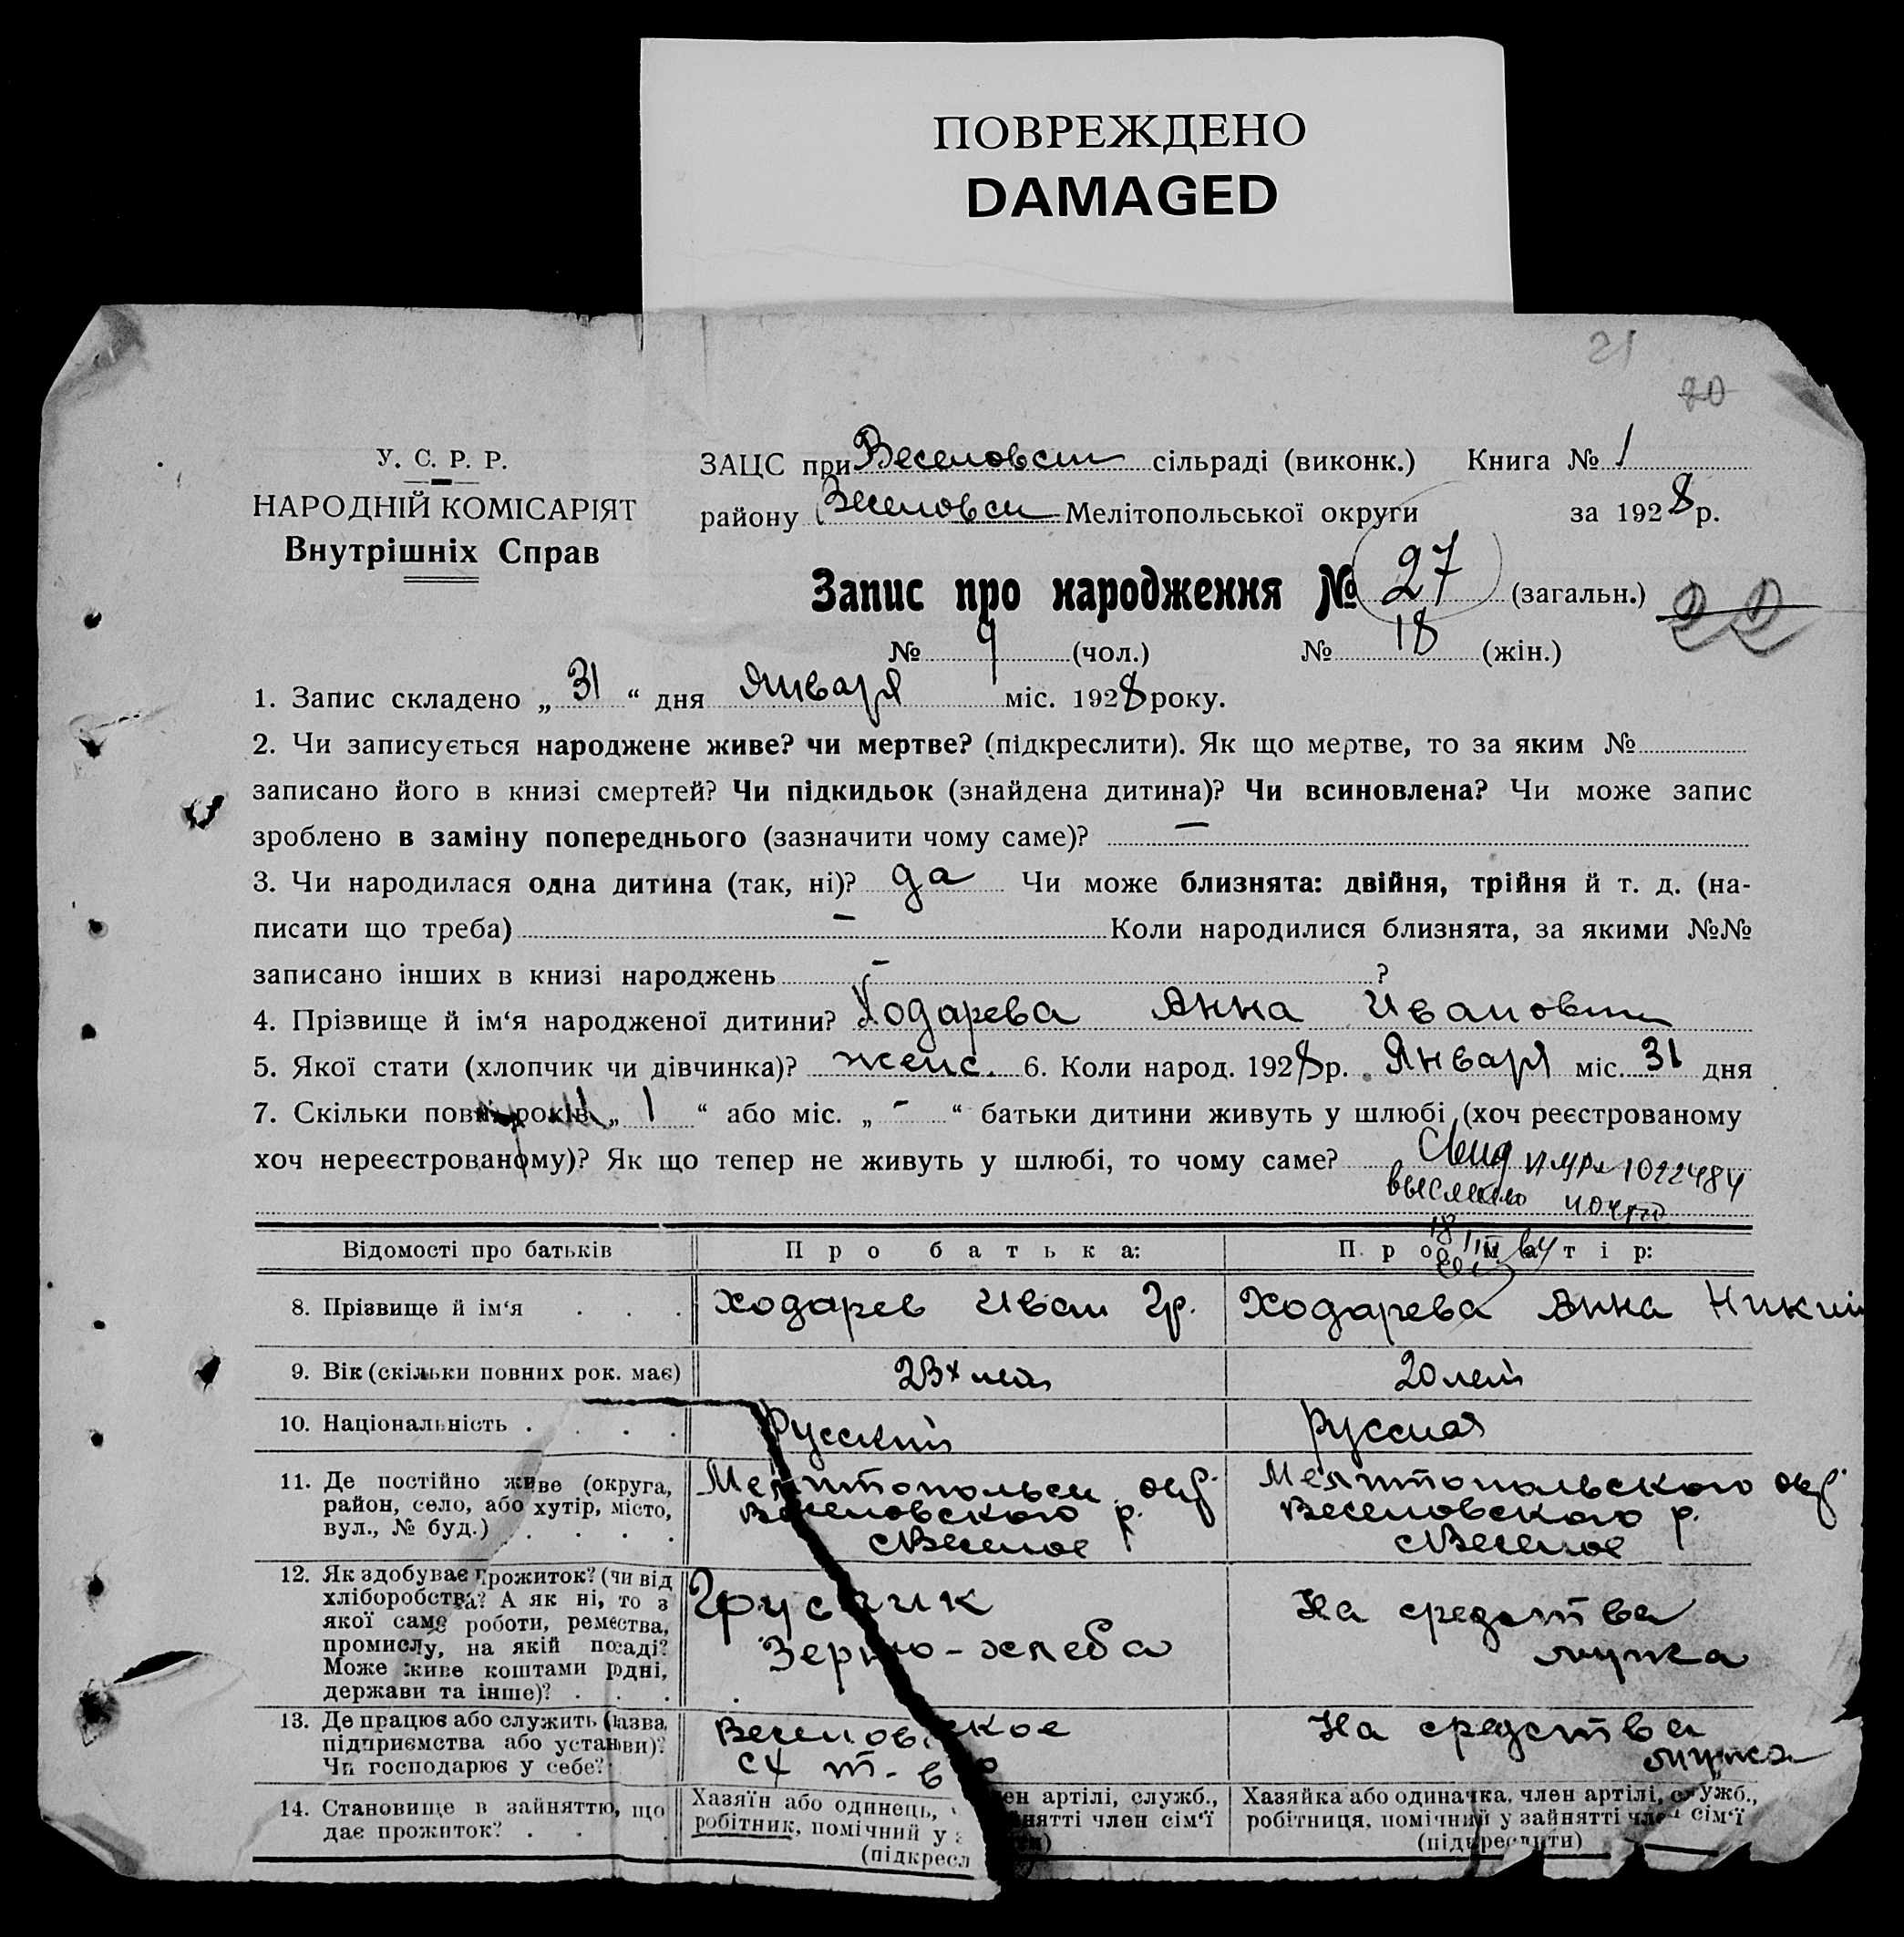 ПОВРЕЖДЕНО
DAMAGED
21
20
У. С. Р. Р.
НАРОДНІЙ КОМІСАРІЯТ
Внутрішніх Справ
ЗАЦС при Веселовск сільраді (виконк.) Книга № 1
району Веселовск Мелітопольської округи за 1928 р.
Запис про народження № 27 (загальн.) 22
№ 9 (чол.) № 18 (жін.)
1. Запис складено „ 31 “ дня Января міс. 1928 року.
2. Чи записується народжене живе? чи мертве? (підкреслити). Як що мертве, то за яким №
записано його в книзі смертей? Чи підкидьок (знайдена дитина)? Чи всиновлена? Чи може запис
зроблено в заміну попереднього (зазначити чому саме)? —
3. Чи народилася одна дитина (так, ні)? да Чи може близнята: двійня, трійня й т. д. (на-
писати що треба) — Коли народилися близнята, за якими №№
записано інших в книзі народжень — ?
4. Прізвище й ім‘я народженої дитини? Ходарева Анна Ивановн
5. Якої стати (хлопчик чи дівчинка)? женс. 6. Коли народ. 1928 р. Января міс. 31 дня
7. Скільки повні років „ 1 “ або міс. „ - “ батьки дитини живуть у шлюбі (хоч реєстрованому
хоч нереєстрованому)? Як що тепер не живуть у шлюбі, то чому саме? Свид 1022484
выслано
Відомості про батьків Про батька: Про матір:
8. Прізвище й ім‘я . . . Ходарев Иван Гр. Ходарева Анна Никит
9. Вік (скільки повних рок. має) 23х лет 20 лет
10. Національність . . . . Русский Русская
11. Де постійно живе (округа,
район, село, або хутір, місто,
вул., № буд.) . . . .
Мелитопольск окр.
Веселовского р.
с Веселое
Мелитопольского окр.
Веселовского р.
с Веселое
12. Як здобуває прожиток? (чи від
хліборобства? А як ні, то з
якої саме роботи, ремества,
промислу, на якій посаді?
Може живе коштами рідні,
держави та інше)? . . .
Грузчик
Зерно-хлеба
На средства
мужа
13. Де працює або служить (назва
підприємства або установи)?
Чи господарює у себе?
Веселовское
СХ т-во
На средства
мужа
14. Становище в зайняттю, що
дає прожиток? . . .
Хазяїн або одинець, ен артілі, служб.,
робітник, помічний у з нятті член сім‘ї
(підкресл
Хазяйка або одиначка, член артілі, служб.,
робітниця, помічний у зайнятті член сім‘ї
(підкреслити)